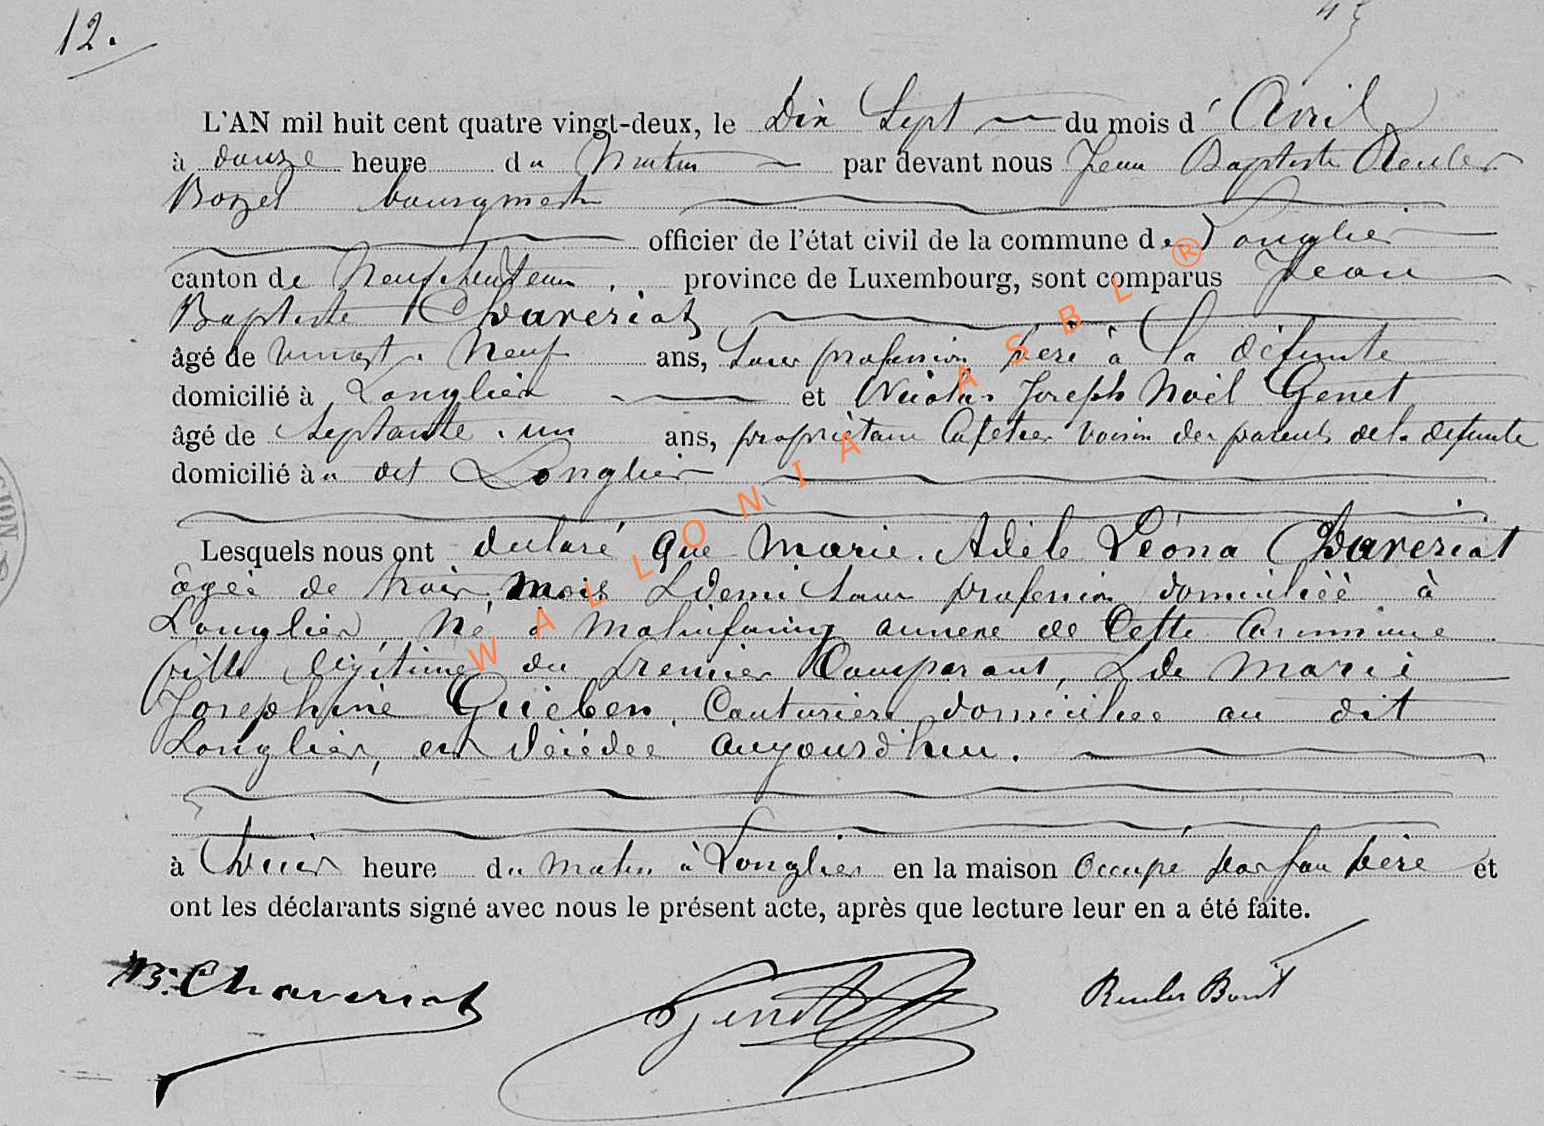 12.
L'AN mil huit cent quatre vingt-deux, le Dix Sept du mois d' Avril
à douze heure du Matin par devant nous Jean Baptiste Reuler
Bozet bourgmestre
officier de l'état civil de la commune de Longlier
canton de Neufchateau province de Luxembourg, sont comparus Jean
Baptiste Chaveriat
âgé de vingt. Neuf ans, Sans profession père à la défunte
domicilié à Longlier et Nicolas Joseph Noël Genet
âgé de Septante. un ans, propriétaire Cafetier voisin des parents de la défunte
domicilié à u dit Longlier
Lesquels nous ont declaré que Marie. Adèle Léona Chaveriat
âgée de trois mois & demi Sans profession domiciliée à
Longlier, Né à Molinfaing annexe de Cette Commune
fille légitime du premier Comparant, & de Marie
Joséphine Guiében, Couturière domiciliée au dit
Longlier, est décédée aujourd'hui.
à heure du matin à Longlier en la maison Occupé par son père et
ont les déclarants signé avec nous le présent acte, après que lecture leur en a été faite.
JB. Chaveriat
Genet
Reuler Bozet
WALLONIA ASBL ®